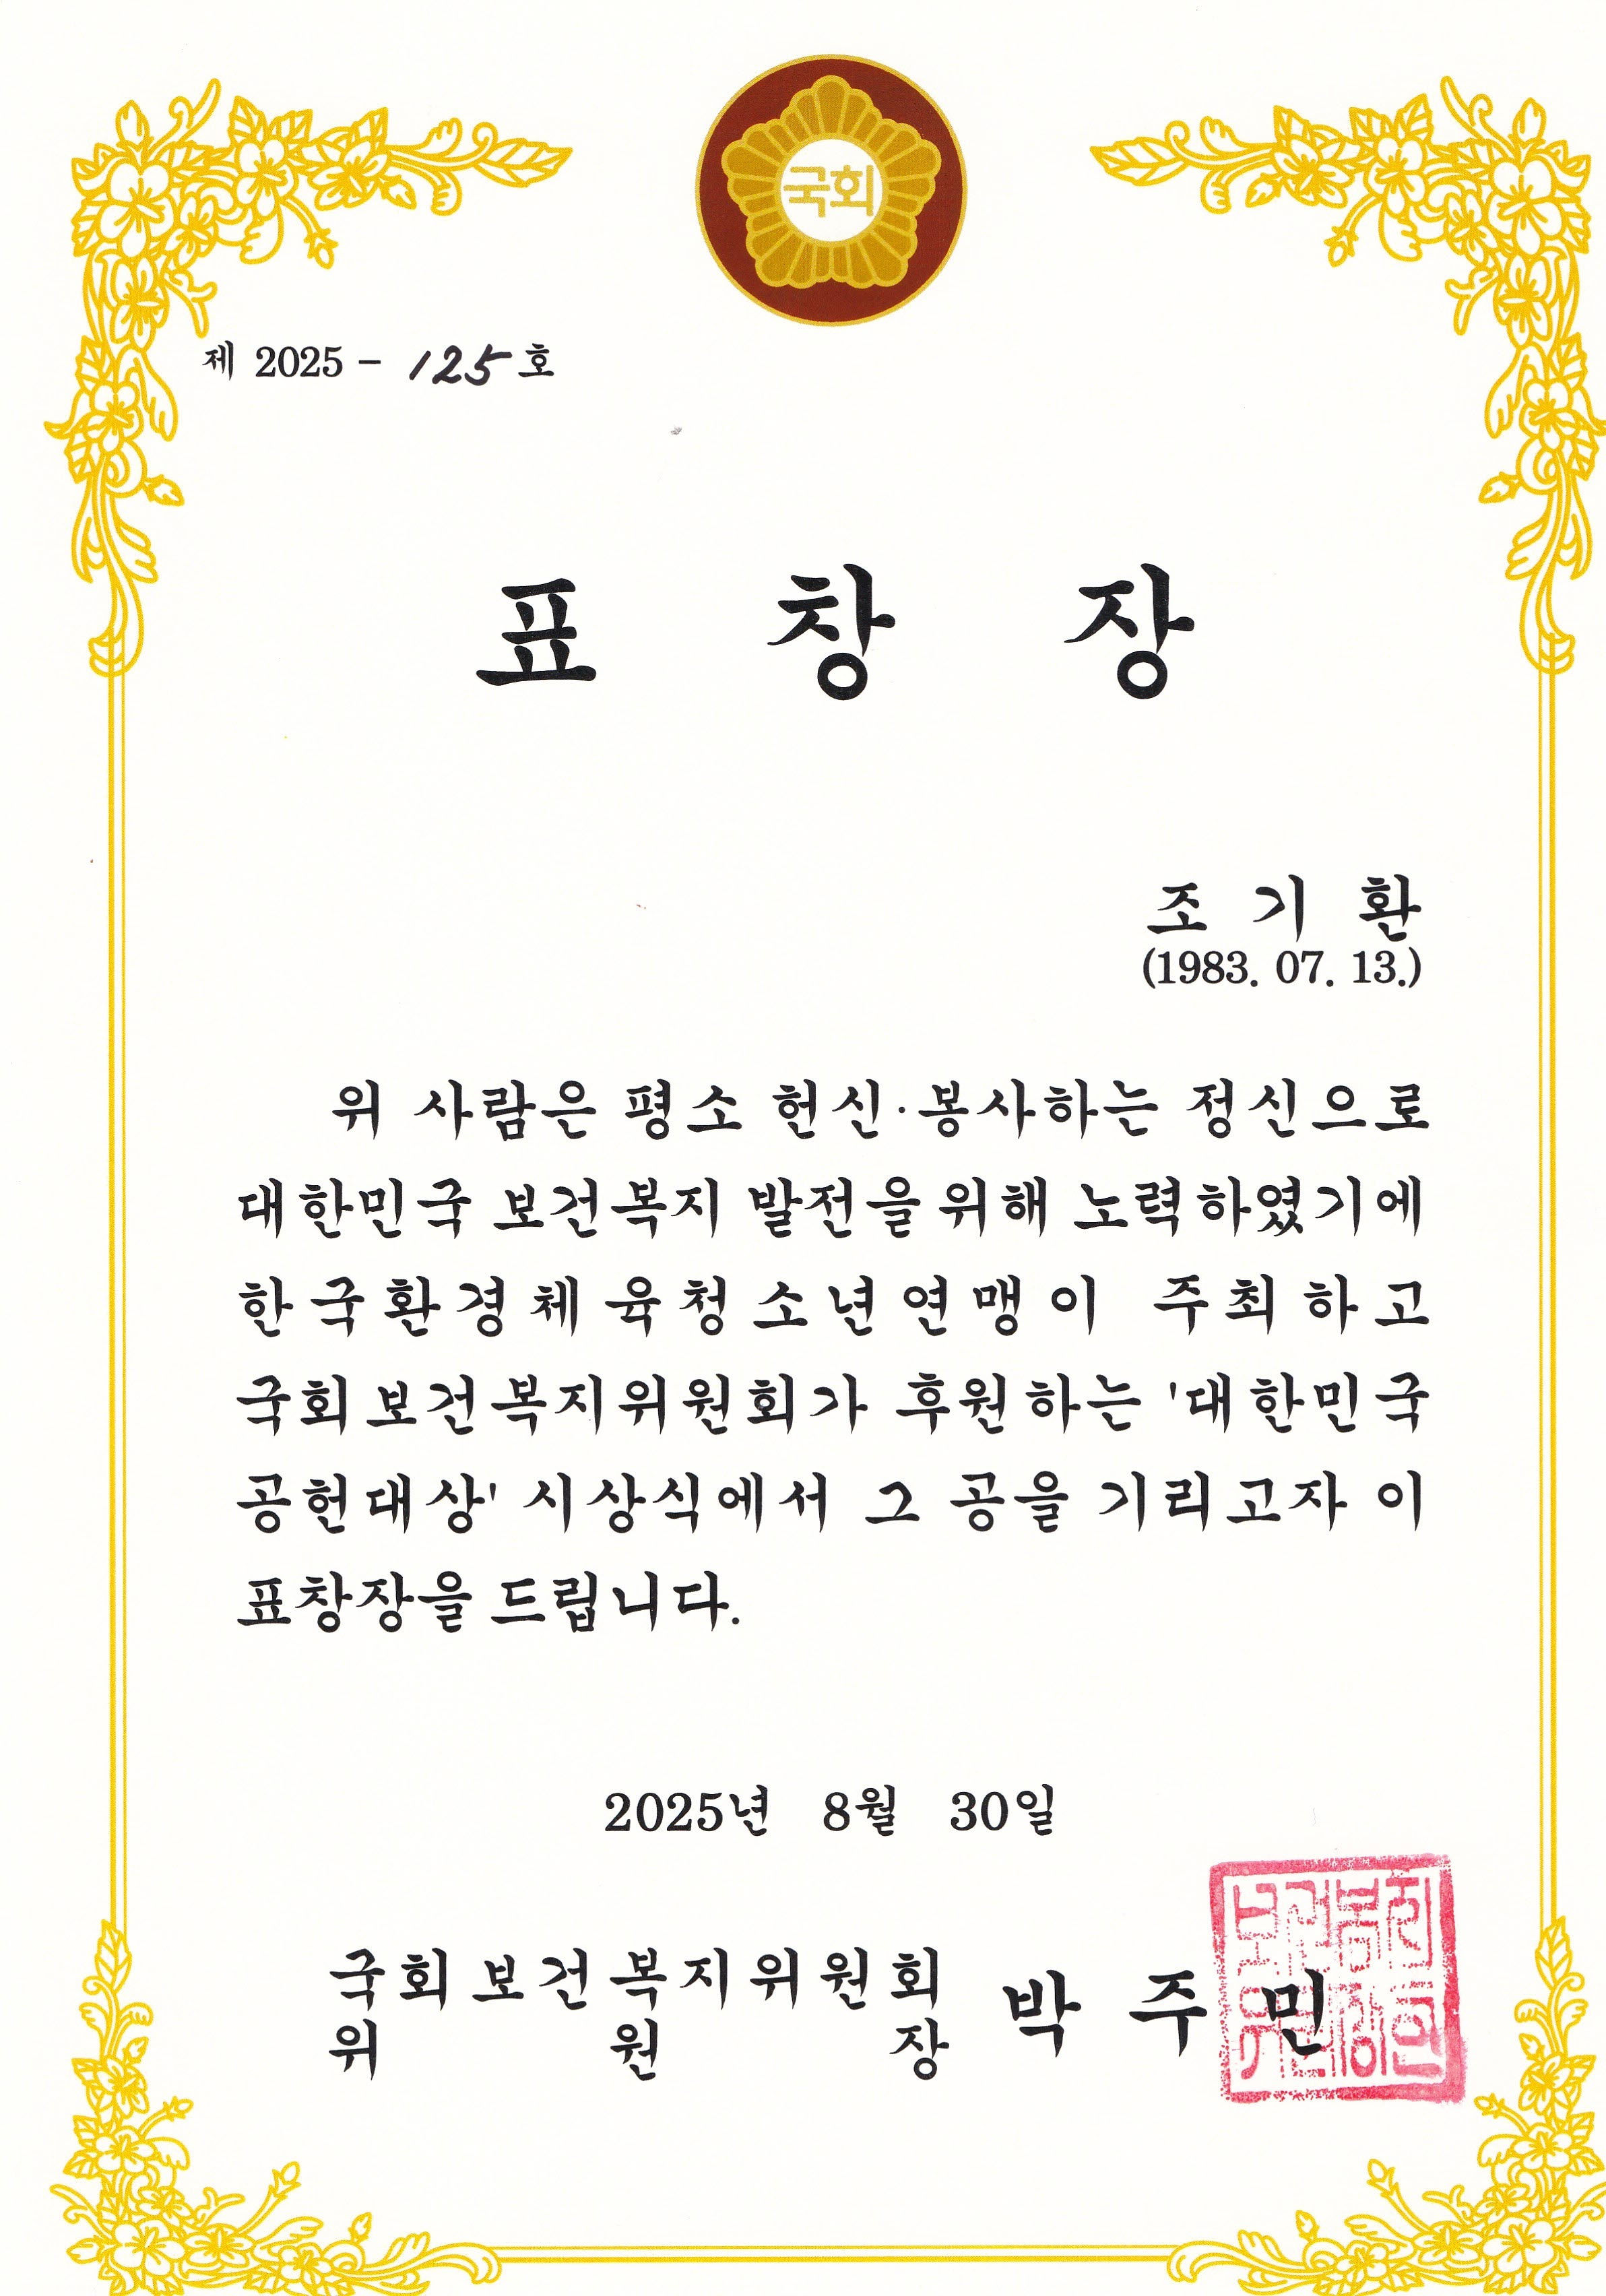 국회
제 2025 - 125 호
표 창 장
조 기 환
(1983. 07. 13.)
위 사람은 평소 헌신·봉사하는 정신으로
대한민국 보건복지 발전을 위해 노력하였기에
한국환경체육청소년연맹이 주최하고
국회보건복지위원회가 후원하는 '대한민국
공헌대상' 시상식에서 그 공을 기리고자 이
표창장을 드립니다.
2025년 8월 30일
국회보건복지위원회
위 원 장 박 주 민